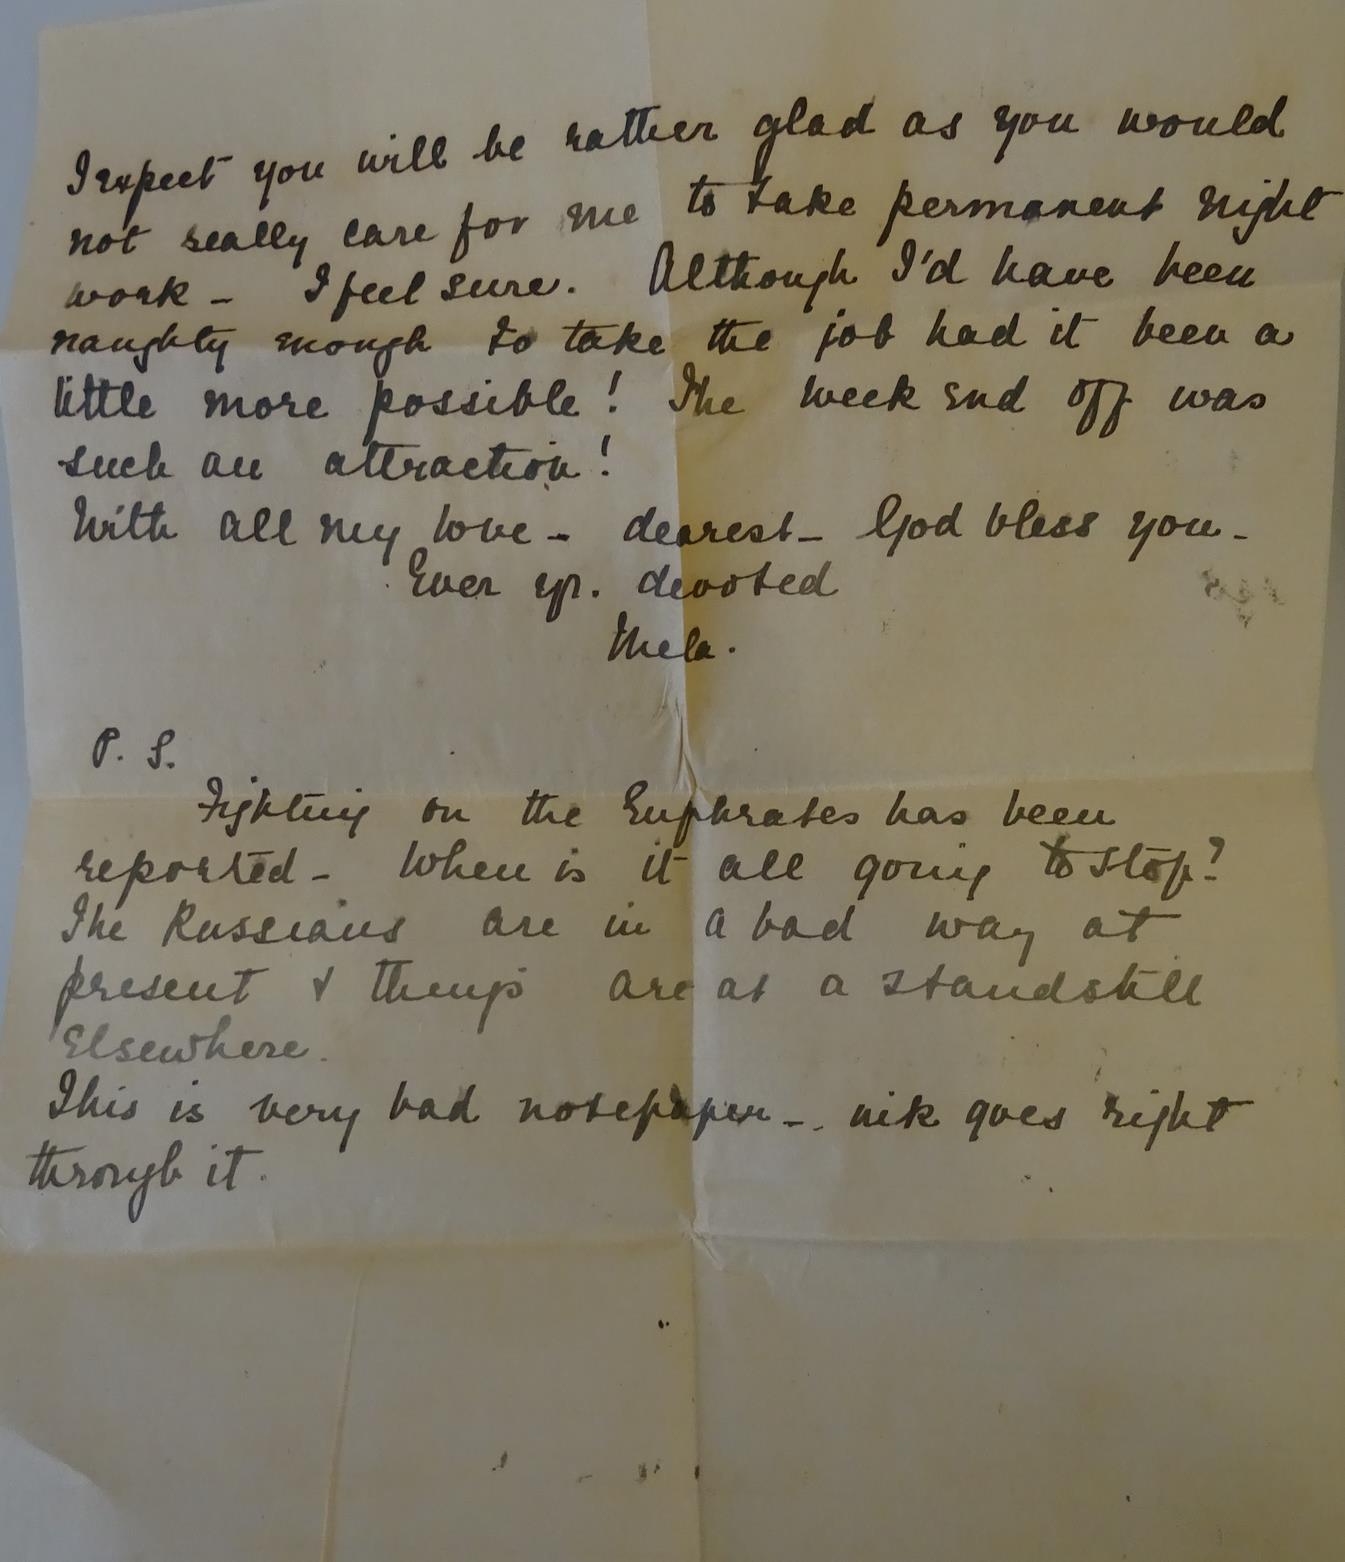 I expect you will be rather glad as you would
not really care for me to take permanent night
work - I feel sure. Although I'd have been
naughty enough to take the job had it been a
little more possible! The week end off was
such an attraction!
With all my love - dearest - God bless you -
Ever yr. devoted
Thela.
P. S.
Fighting on the Euphrates has been
reported - When is it all going to stop?
The Russians are in a bad way at
present & things are at a standstill
Elsewhere.
This is very bad notepaper - ink goes right
through it.